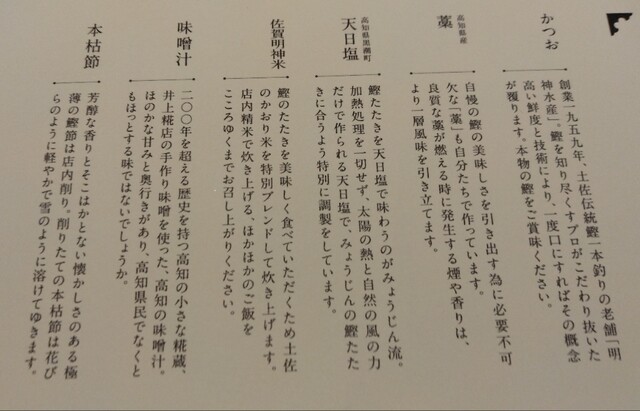 かつお
創業一九五九年、土佐伝統鰹一本釣りの老舗「明
神水産」。鰹を知り尽くすプロがこだわり抜いた
高い鮮度と技術により、一度口にすればその概念
が覆ります。本物の鰹をご賞味ください。
高知県産
藁
自慢の鰹の美味しさを引き出す為に必要不可
欠な「藁」も自分たちで作っています。
良質な藁が燃える時に発生する煙や香りは、
より一層風味を引き立てます。
高知県黒潮町
天日塩
鰹たたきを天日塩で味わうのがみょうじん流。
加熱処理を一切せず、太陽の熱と自然の風の力
だけで作られる天日塩で、みょうじんの鰹たた
きに合うよう特別に調製をしています。
佐賀明神米
鰹のたたきを美味しく食べていただくため土佐
のかおり米を特別ブレンドして炊き上げます。
店内精米で炊き上げる、ほかほかのご飯を
こころゆくまでお召し上がりください。
味噌汁
二〇〇年を超える歴史を持つ高知の小さな糀蔵、
井上糀店の手作り味噌を使った、高知の味噌汁。
ほのかな甘みと奥行きがあり、高知県民でなくと
もほっとする味ではないでしょうか。
本枯節
芳醇な香りとそこはかとない懐かしさのある極
薄の鰹節は店内削り、削りたての本枯節は花び
らのように軽やかで雪のように溶けてゆきます。